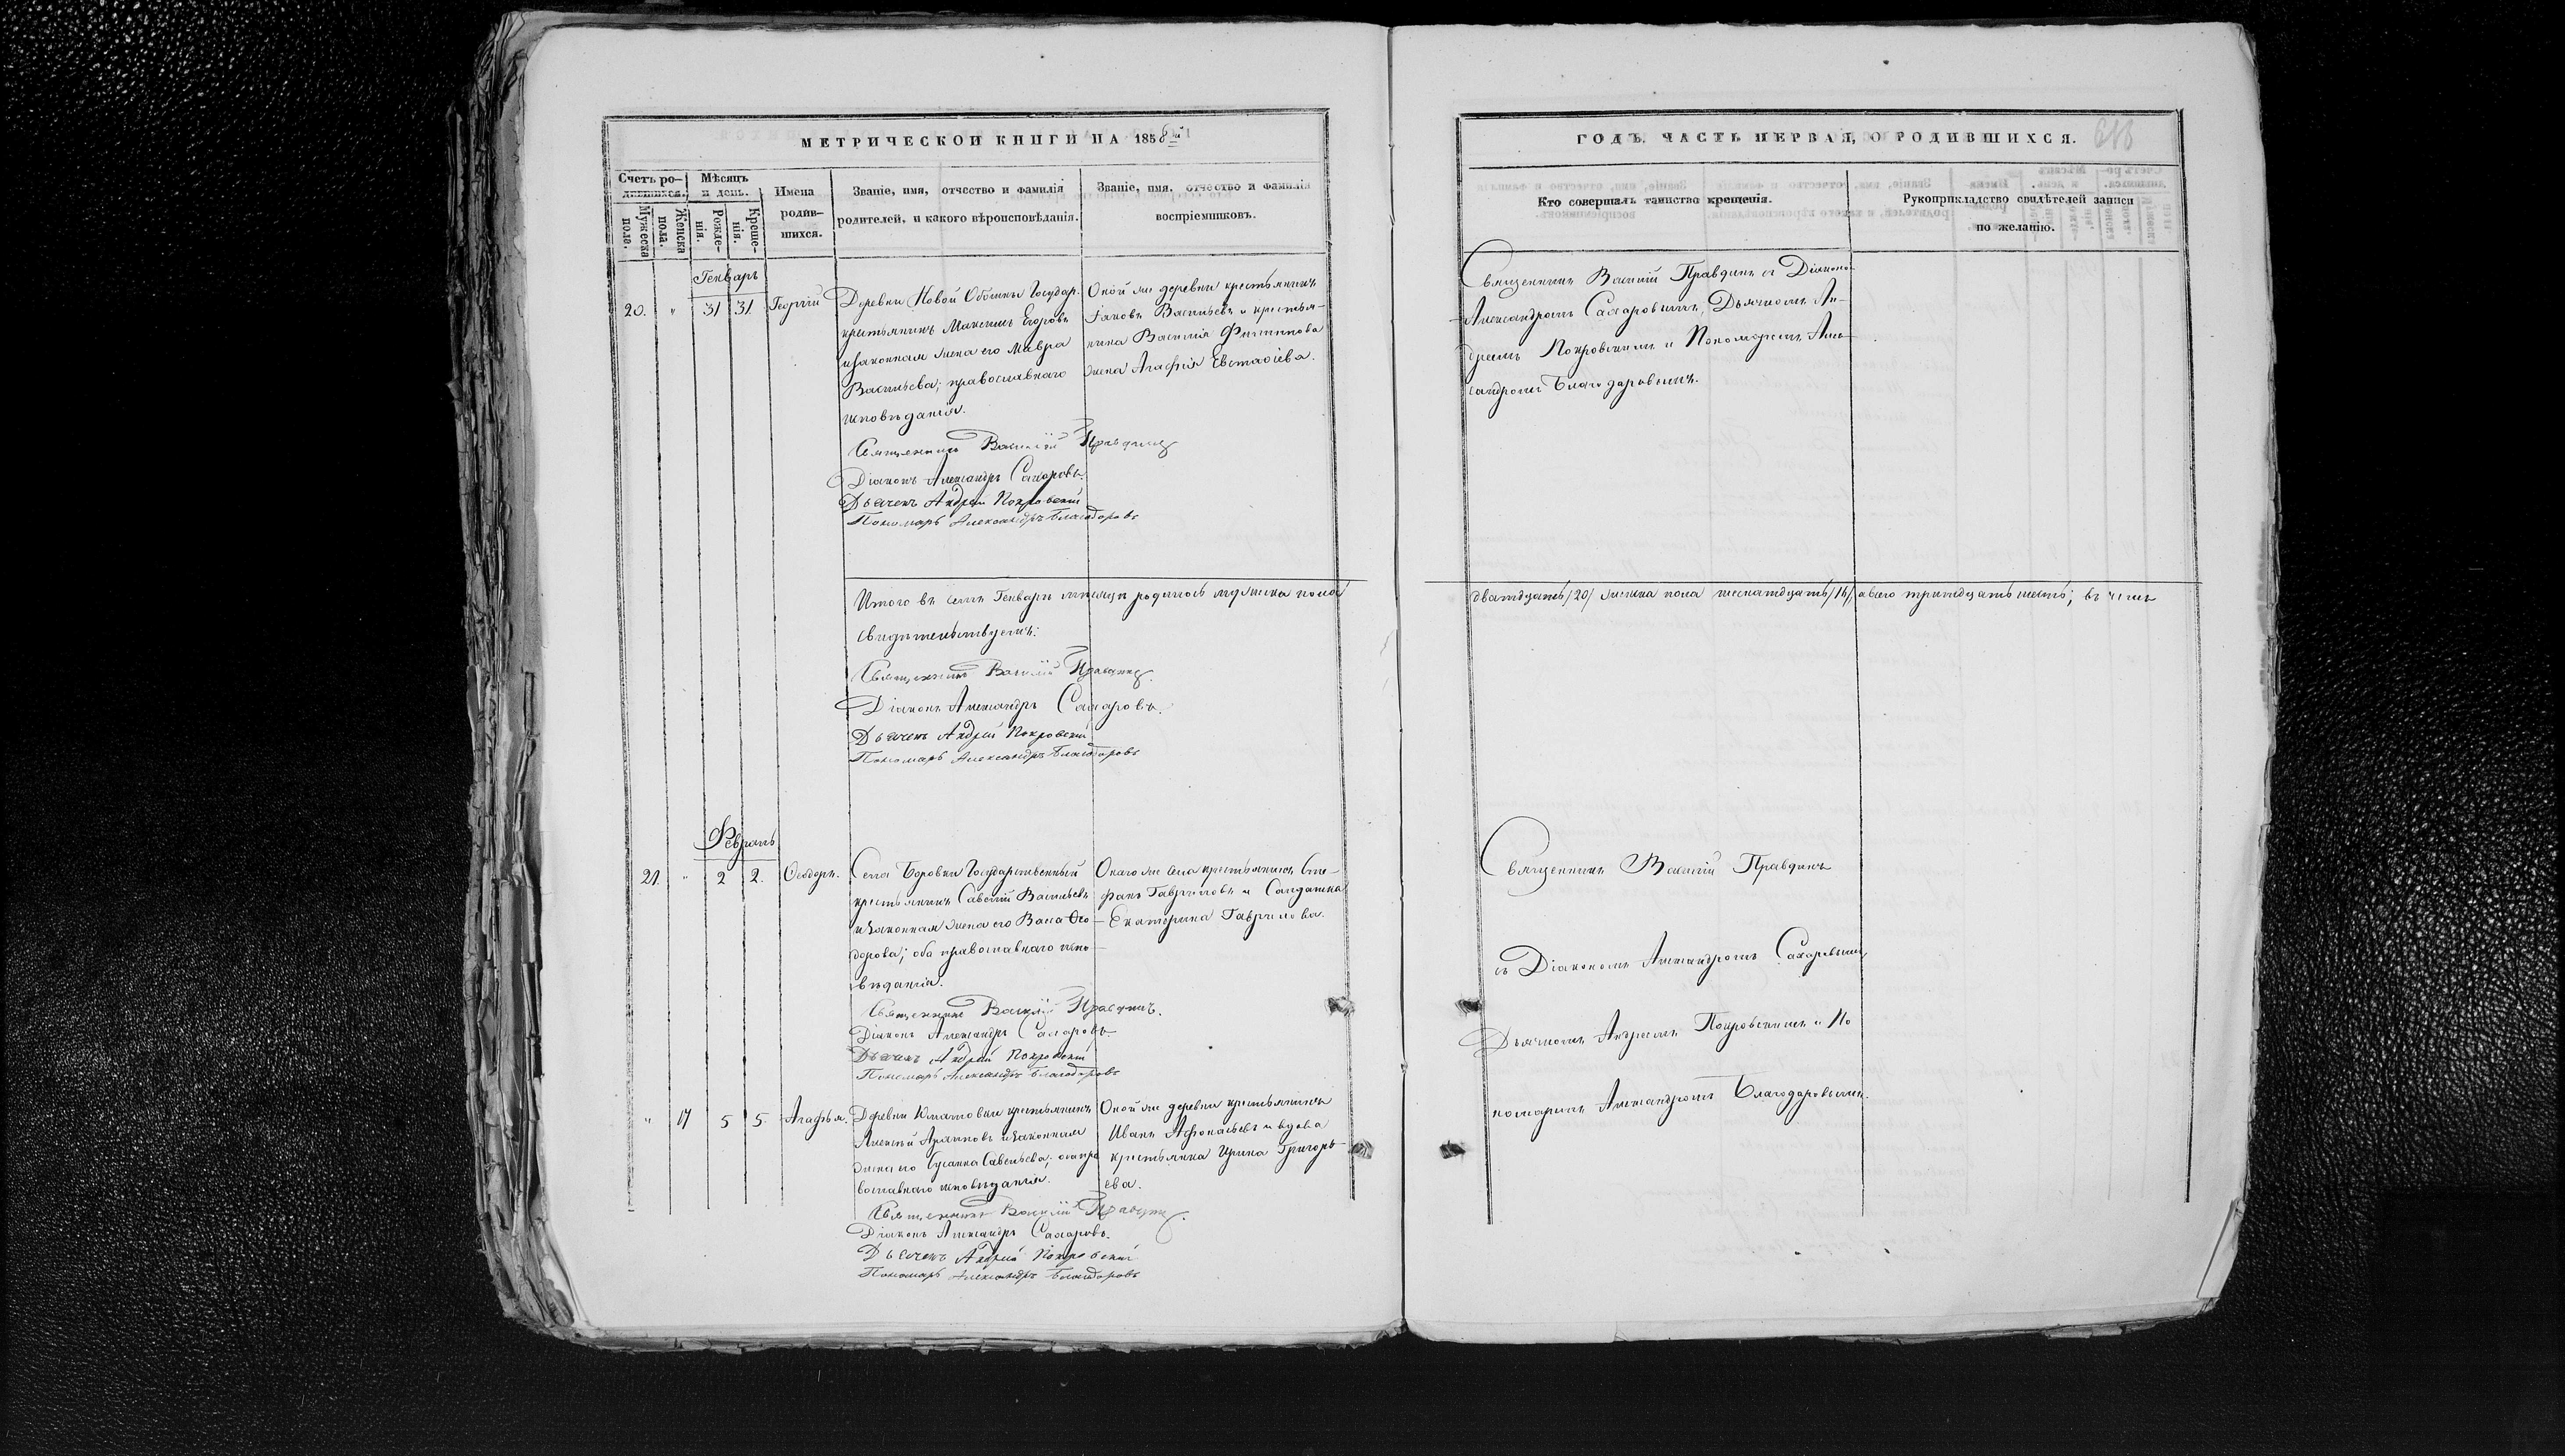 МЕТРИЧЕСКОЙ КНИГИ НА 1858й
Счетъ ро-
дившихся.
Мужеска пола.
Женска пола.
Мѣсяцъ
и день.
Рожде-
нія.
Креще-
нія.
Имена
родив-
шихся.
Званіе, имя, отчество и фамилія
родителей, и какого вѣроисповѣданія.
Званіе, имя, отчество и фамилія
воспріемниковъ.
Генварь
20. " 31 31. Георгій
Деревни Новой Государ.
крестьянинъ Максимъ Егоровъ
и законная жена его Мавра
Васильева; православнаго
исповѣданія.
Оной же деревни крестьянинъ
Іаковъ Васильевъ и крестья-
нина Василія Филиппова
жена Агафія Евстафіева.
Священникъ Василій Правдинъ
Діаконъ Александръ Сахаровъ.
Дьячекъ Андрей Покровскій
Пономарь Александръ Благодаровъ
Итого въ семъ Генварѣ мѣсяцѣ родилось мужеска пола
свидѣтельствуемъ:
Священникъ Василій Правдинъ.
Діаконъ Александръ Сахаровъ.
Дьячекъ Андрей Покровскій
Пономарь Александръ Благодаровъ
Февраль
21. " 2 2. Ѳеодоръ.
Села Боровки Государственный
крестьянинъ Савелій Васильевъ
и законная жена его Васса Ѳео-
дорова; оба православнаго испо-
вѣданія.
Онаго же села крестьянинъ Сте-
фанъ Гавриловъ и Салдатка
Екатерина Гаврилова.
Священникъ Василій Правдинъ.
Діаконъ Александръ Сахаровъ.
Дьячекъ Андрей Покровскій
Пономарь Александръ Благодаровъ
" 17 5 5. Агафья.
Деревни крестьянинъ
Алексѣй и законная
жена его Сусанна Савельева; оба пра
вославнаго исповѣданія.
Оной же деревни крестьянинъ
Иванъ Афонасьевъ и вдова
крестьянка Ирина Григорь-
ева.
Священникъ Василій Правдинъ.
Діаконъ Александръ Сахаровъ.
Дьячекъ Андрей Покровскій
Пономарь Александръ Благодаровъ
ГОДЪ, ЧАСТЬ ПЕРВАЯ, О РОДИВШИХСЯ.
Кто совершалъ таинство крещенія.
Рукоприкладство свидѣтелей записи
по желанію.
Священникъ Василій Правдинъ съ Діакономъ
Александромъ Сахаровымъ, Дьячкомъ Ан-
дреемъ Покровскимъ и Пономаремъ Алек-
сандромъ Благодаровымъ.
дватцать /20/ женска пола шеснатцать /16/, а всего тритцать шесть; въ чемъ
Священникъ Василій Правдинъ
съ Діакономъ Александромъ Сахаровымъ,
Дьячкомъ Андреемъ Покровскимъ и По
номаремъ Александромъ Благодаровымъ.